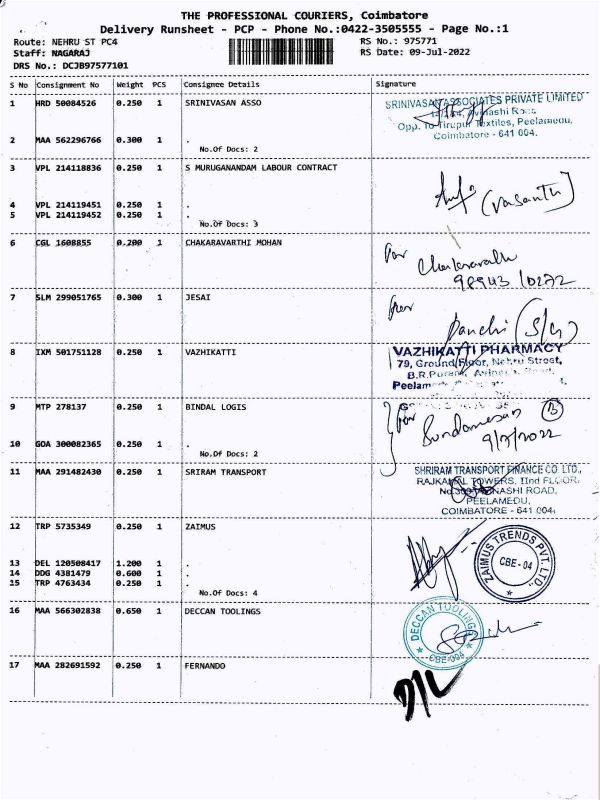 THE PROFESSIONAL COURIERS, Coimbatore
Delivery Runsheet - PCP - Phone No.:0422-3505555 - Page No.:1
Route: NEHRU ST PC4 RS No.: 975771
Staff: NAGARAJ RS Date: 09-Jul-2022
DRS No.: DCJB97577101
S No Consignment No Weight PCS Consignee Details Signature
1 HRD 50084526 0.250 1 SRINIVASAN ASSO
SRINIVASAN ASSOCIATES PRIVATE LIMITED
Avinashi Road
Opp. To Tirupur Textiles, Peelamedu,
Coimbatore - 641 004.
2 MAA 562296766 0.300 1 .
No.Of Docs: 2
3 VPL 214118836 0.250 1 S MURUGANANDAM LABOUR CONTRACT
(Vasanth)
4 VPL 214119451 0.250 1 .
5 VPL 214119452 0.250 1 .
No.Of Docs: 3
6 CGL 1608855 0.200 1 CHAKARAVARTHI MOHAN
for
98943 10272
7 SLM 299051765 0.300 1 JESAI
8 IXM 501751128 0.250 1 VAZHIKATTI
VAZHIKATTI PHARMACY
79, Ground Floor, Nehru Street,
B.R.Puram,
9 MTP 278137 0.250 1 BINDAL LOGIS
for
9/7/2022
10 GOA 300082365 0.250 1 .
No.Of Docs: 2
11 MAA 291482430 0.250 1 SRIRAM TRANSPORT
SHRIRAM TRANSPORT FINANCE CO LTD.,
RAJKAMAL TOWERS, IInd FLOOR,
AVINASHI ROAD,
PEELAMEDU,
COIMBATORE - 641 004.
12 TRP 5735349 0.250 1 ZAIMUS
ZAIMUS TRENDS PVT. LTD.
CBE - 04
13 DEL 120508417 1.200 1 .
14 DDG 4381479 0.600 1 .
15 TRP 4763434 0.250 1 .
No.Of Docs: 4
16 MAA 566302838 0.650 1 DECCAN TOOLINGS
DECCAN TOOLINGS
CBE-004
17 MAA 282691592 0.250 1 FERNANDO
D/L